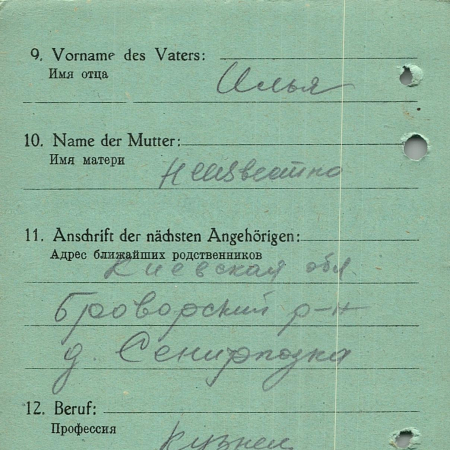 9. Vorname des Vaters:
Имя отца
Илья
10. Name der Mutter:
Имя матери
Неизвестно
11. Anschrift der nächsten Angehörigen:
Адрес ближайших родственников
Киевская обл.
Броворский р-н
д.
12. Beruf:
Профессия
Кузнец